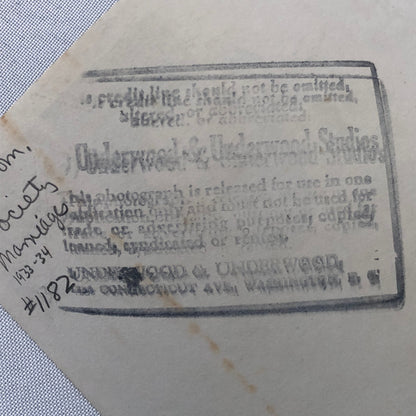 credit line should not be omitted,
altered or abbreviated.
Underwood & Underwood Studios
This photograph is released for use in one
publication only and must not be used for
trade or advertising purposes, copied,
loaned, syndicated or rented.
UNDERWOOD & UNDERWOOD,
CONNECTICUT AVE, WASHINGTON, D. C.
om,
ociety
Marriage
1933-34
#1182